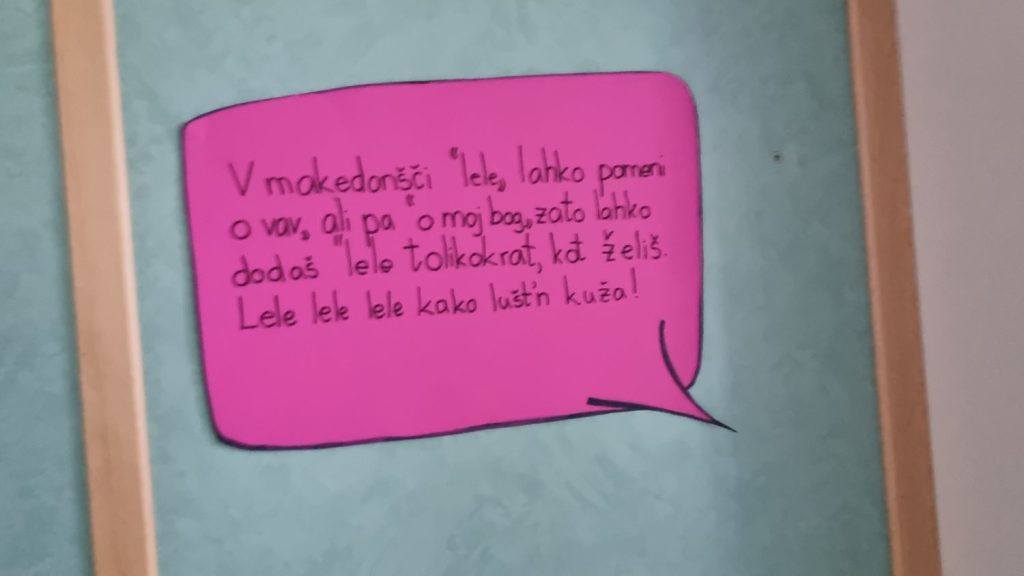 V makedonšči "lele„ lahko pomeni
o vav„ ali pa "o moj bog„ zato lahko
dodaš "lele tolikokrat, kot želiš.
Lele lele lele kako lušt'n kuža!